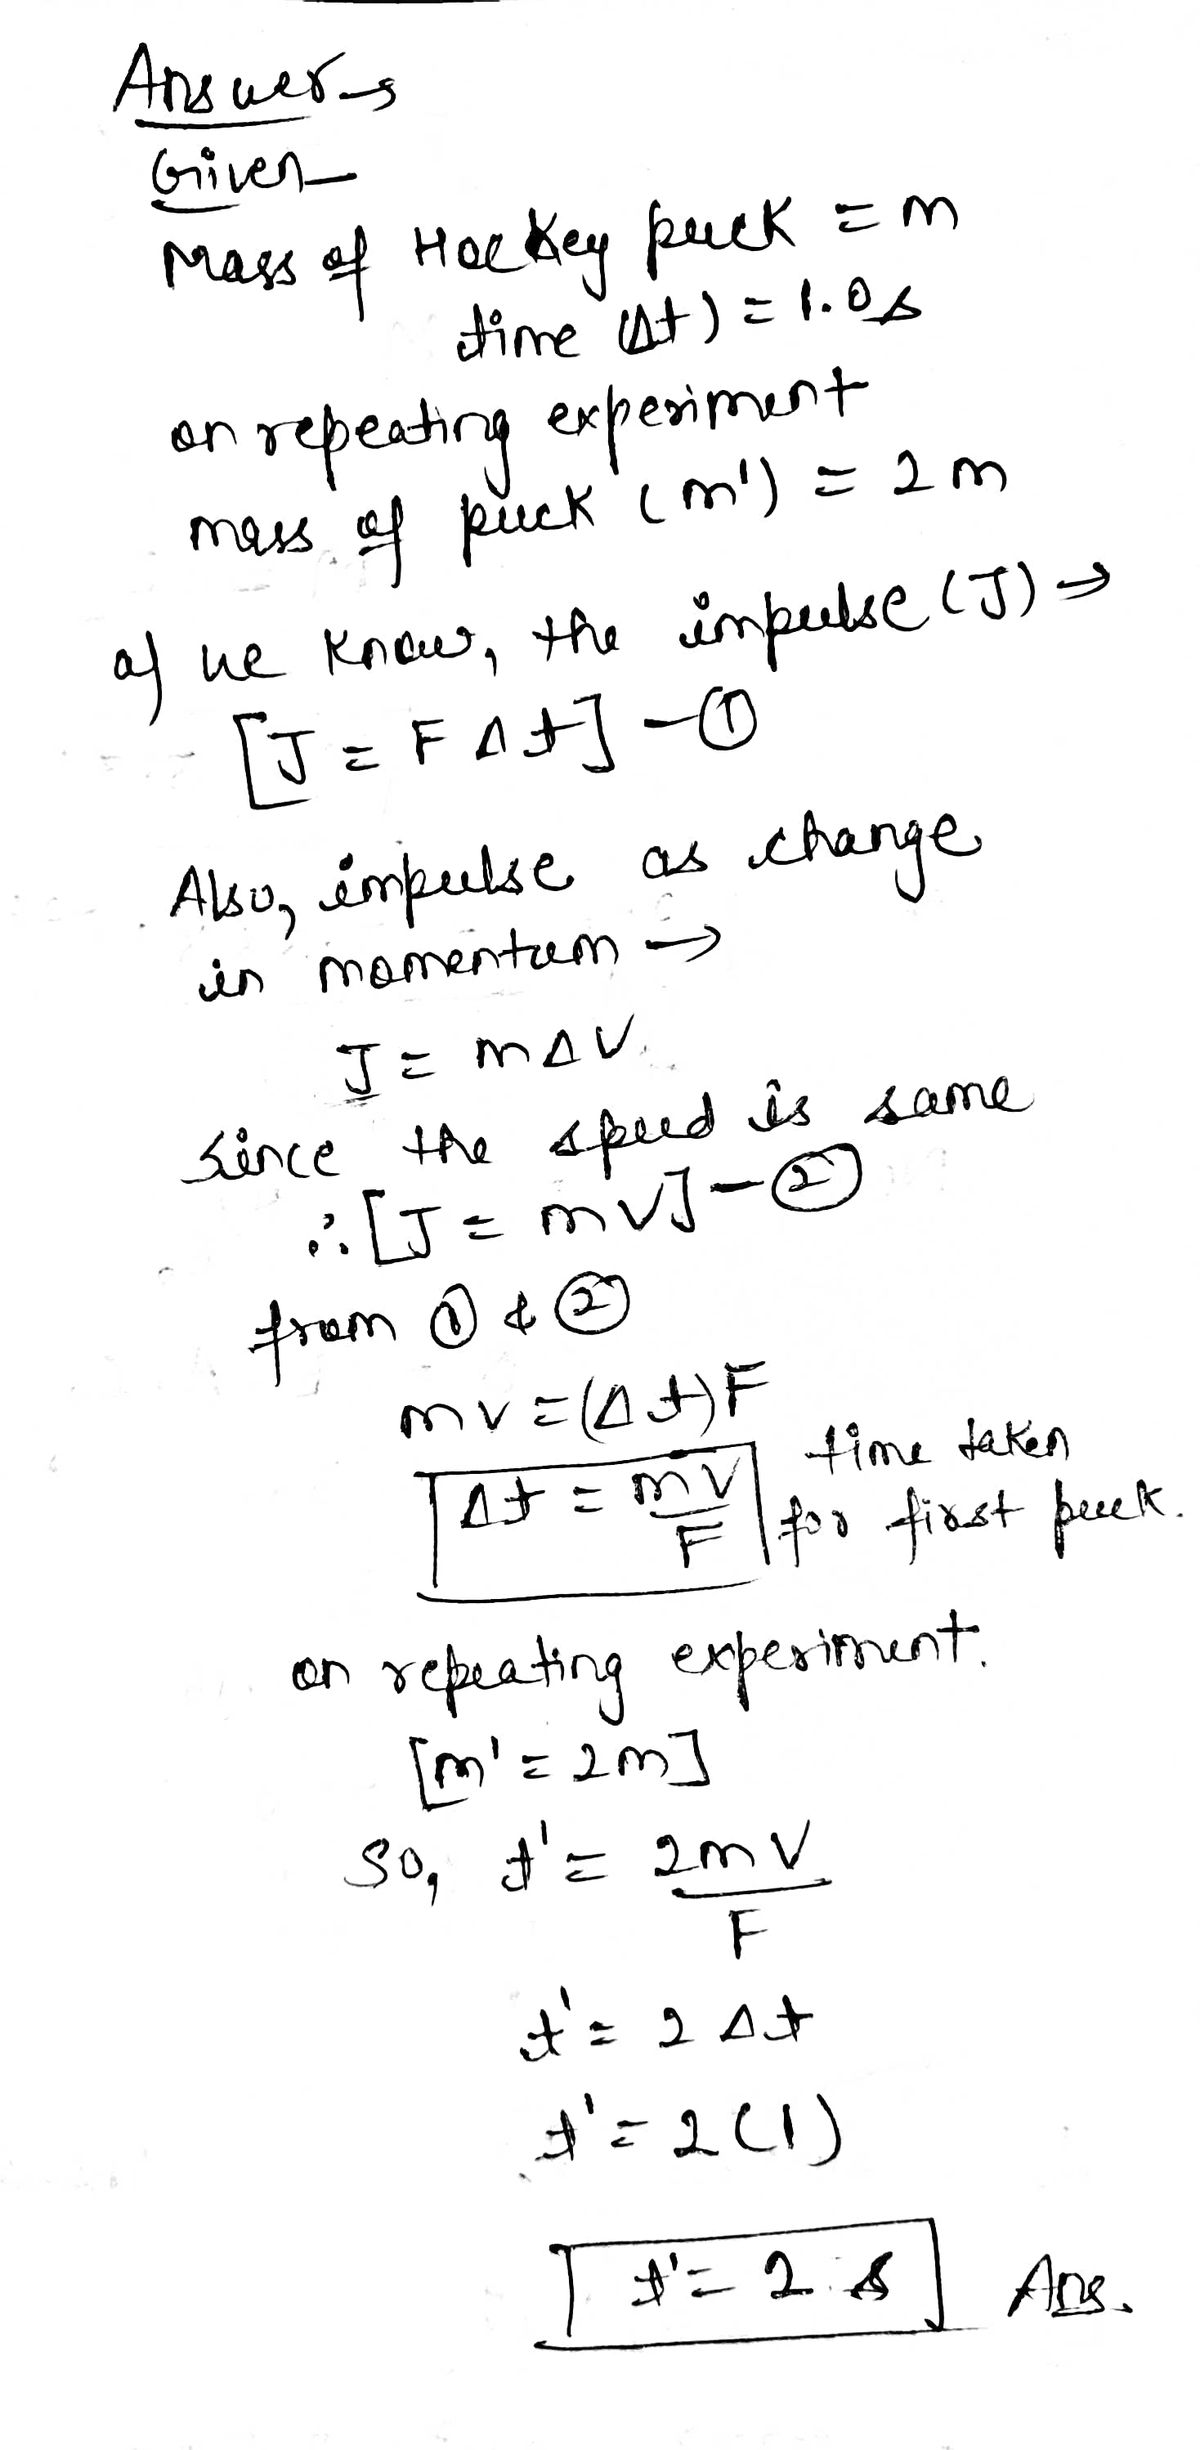 Answer→
Given—
Mass of Hockey puck = m
time (Δt) = 1.0s
on repeating experiment
mass of puck (m') = 2m
as we know, the impulse (J) →
[J = F Δt] — ①
Also, impulse as change
in momentum →
J = mΔV
since the speed is same
∴ [J = mV] — ②
from ① & ②
mv = (Δt)F
Δt = mV/F time taken
for first puck.
on repeating experiment.
[m' = 2m]
So, t' = 2mV/F
t' = 2 Δt
t' = 2(1)
t' = 2 s Ans.